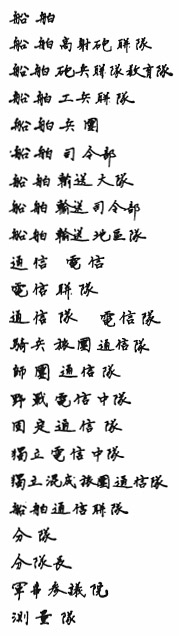 船舶
船舶高射砲聯隊
船舶砲兵聯隊教育隊
船舶工兵聯隊
船舶兵團
船舶司令部
船舶輸送大隊
船舶輸送司令部
船舶輸送地區隊
通信 電信
電信聯隊
通信隊 電信隊
騎兵旅團通信隊
師團通信隊
野戰電信中隊
固定通信隊
獨立電信中隊
獨立混成旅團通信隊
船舶通信聯隊
分隊
分隊長
軍事參議院
測量隊